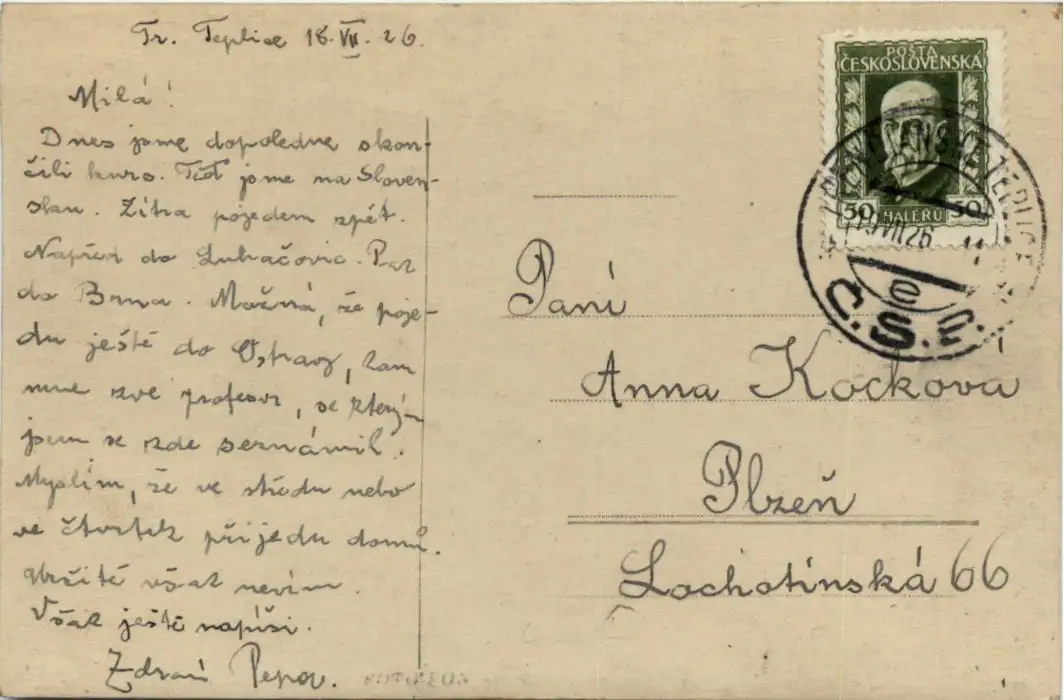 Tr. Teplice 18. VII. 26.
Milá!
Dnes jsme dopoledne skon-
čili kurs. Teď jsme na Sloven-
sku. Zítra pojedem zpět.
Napřed do Luhačovic. Pak
do Brna. Možná, že poje-
du ještě do Ostravy, kam
mne zve profesor, se kterým
jsem se zde seznámil.
Myslím, že ve středu nebo
ve čtvrtek přijedu domů.
Určitě však nevím.
Však ještě napíši.
Zdraví Pepa.
POŠTA
ČESKOSLOVENSKÁ
50 HALÉŘŮ 50
TEPLICE
19 VII 26
Č.S.P.
Paní
Anna Kocková
Plzeň
Lochotínská 66